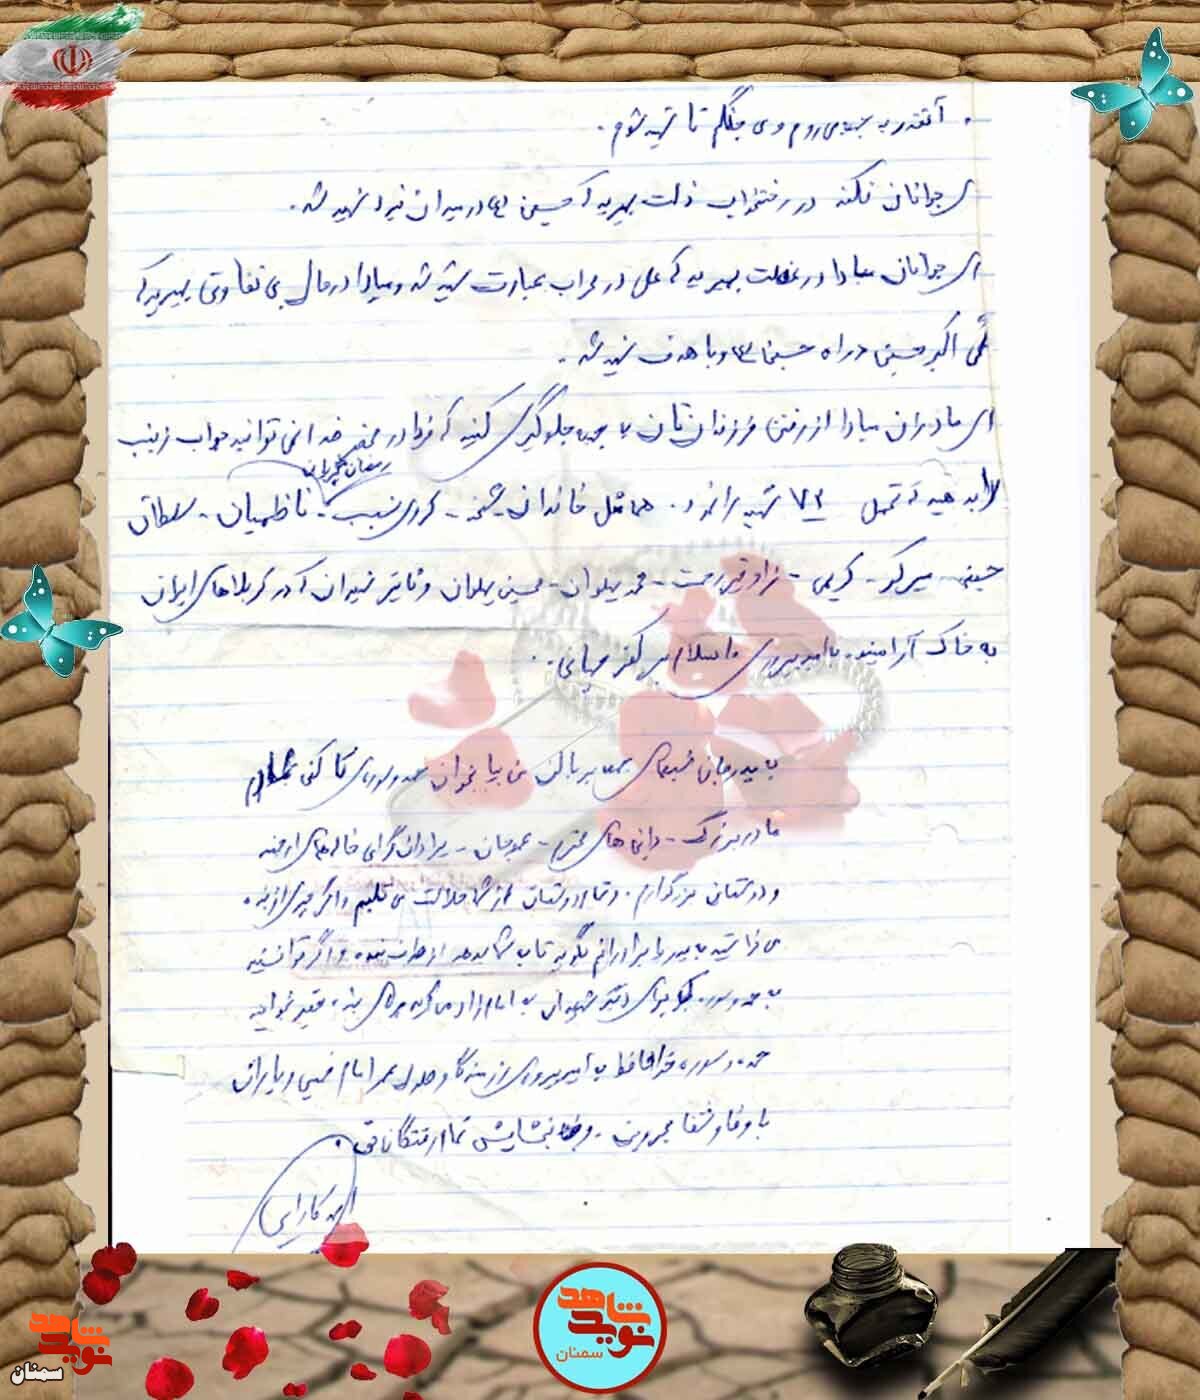 آنقدر به جبهه می روم و می جنگم تا شهید شوم.
ای جوانان نکند در رختخواب ذلت بمیرید که حسین (ع) در میدان نبرد شهید شد.
ای جوانان مبادا در غفلت بمیرید که علی در محراب عبادت شهید شد و مبادا در حال بی تفاوتی بمیرید که
علی اکبر حسین در راه حسین (ع) و با هدف شهید شد.
ای مادران مبادا از رفتن فرزندانتان به جبهه جلوگیری کنید که فردا در محضر خدا نمی توانید جواب زینب
رمضان
را بدهید که تحمل ۷۲ شهید را نمود. خاندان - ناظمیان - سلطان
حسینی - کریمی - محمد پهلوان - حسین پهلوان و شهیدان که در کربلاهای ایران
به خاک آرامیدند. به امید پیروزی اسلام بر کفر جهانی.
پدرجان بر بالین من بیا بخوان حمد و سوره ای
مادربزرگ - دایی های محترم - عموجان - برادران گرامی خاله های ارجمند
و دوستان بزرگوارم. و تمام دوستان از شما حلالیت می طلبم و اگر چیزی از بنده
می خواستید به پدر یا برادرانم بگویید تا به شما بدهد از طرف بنده و اگر توانستید
به حمد و سوره برای شهیدان به امامزاده برای بنده حقیر بخوانید
حمد و سوره خداحافظ به امید پیروزی رزمندگان و طول عمر امام خمینی و یاران
با وفا و شفا مجروحین - و بخشایش تمام رفتگان
نوید شاهد
سمنان
نوید شاهد
سمنان